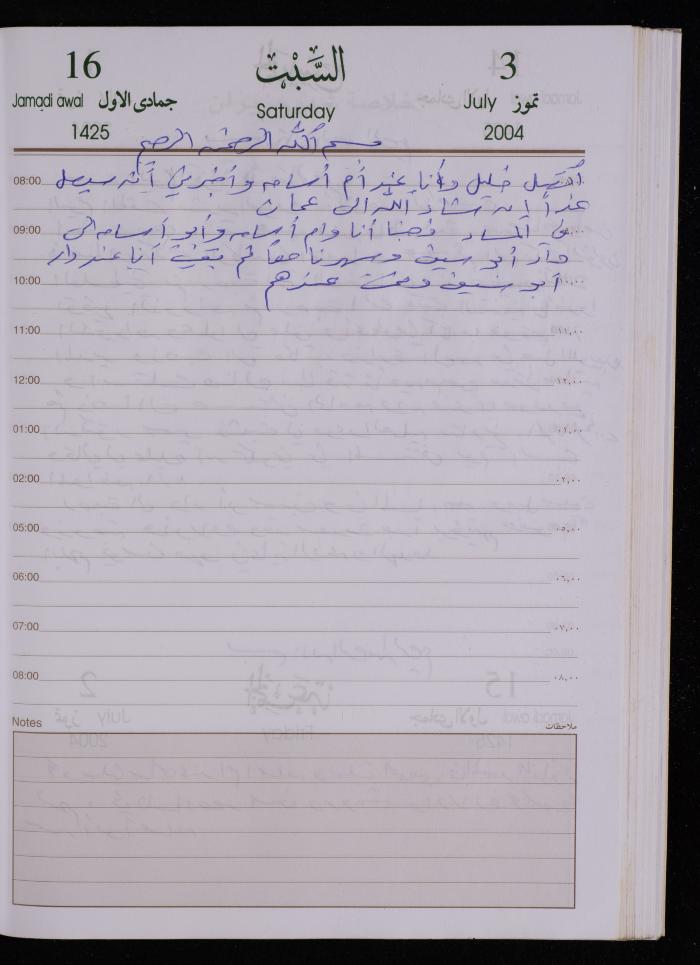 16 السَّبْت 3
Jamadi awal جمادى الاول Saturday July تموز
1425 2004
بسم الله الرحمن الرحيم
08:00 اتصل خليل وأنا عند أم أسامه وأخبرني أنه سيصل
غداً إن شاء الله الى عمان
09:00 في المساء ذهبنا أنا وام أسامه وأبو أسامه الى
دار أبو سيف وسهرنا معاً ثم بقيت أنا عند دار
10:00 أبو سيف ونمت عندهم ١٠,٠٠
11:00 ١١,٠٠
12:00 ١٢,٠٠
01:00 ٠١,٠٠
02:00 ٠٢,٠٠
05:00 ٠٥,٠٠
06:00 ٠٦,٠٠
07:00 ٠٧,٠٠
08:00 ٠٨,٠٠
Notes ملاحظات